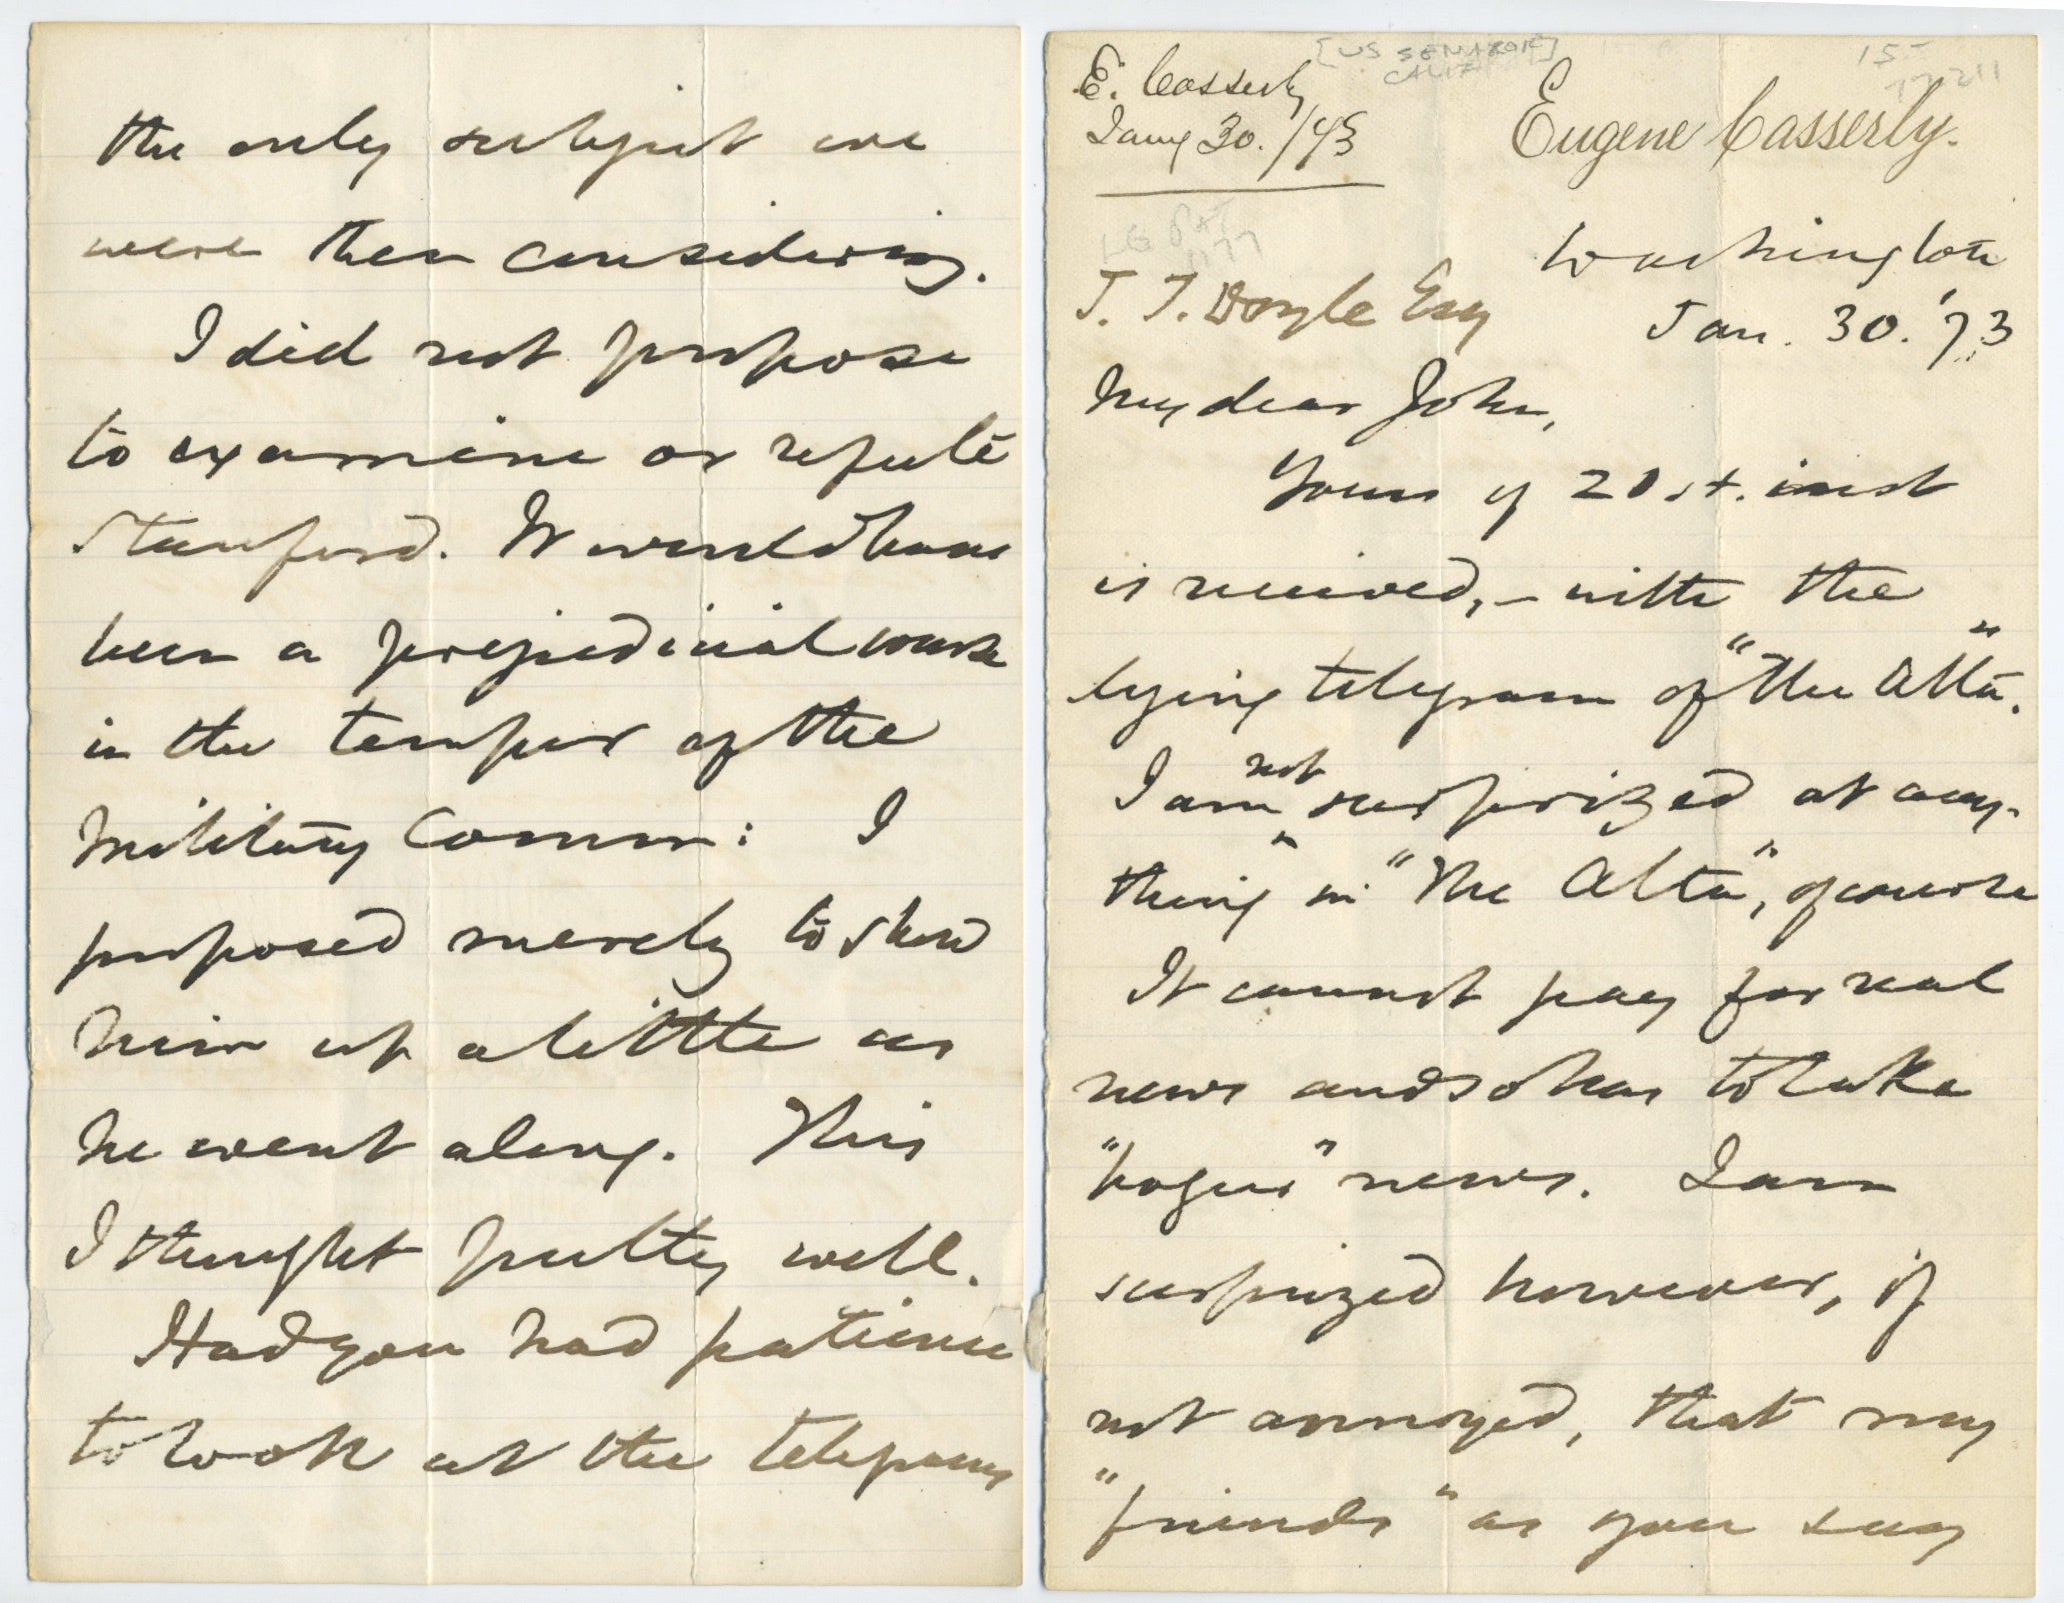 E. Casserly
Jany 30. /73
[US SENATOR]
CALIF
Eugene Casserly.
Washington
Jan. 30. '73
J. T. Doyle Esq
My dear John,
Yours of 21st. inst
is received, – with the
lying telegram of "The Alta".
I am not surprized at any-
thing in "The Alta", of course
It cannot pay for real
news and so has to take
"bogus" news. I am
surprized however, if
not annoyed, that my
"friends" as you say
the only subject we
were then considering.
I did not propose
to examine or refute
Stanford. It would have
been a prejudicial course
in the temper of the
Military Comm: I
proposed merely to show
him up a little as
he went along. This
I thought pretty well.
Had you had patience
to look at the telegrams